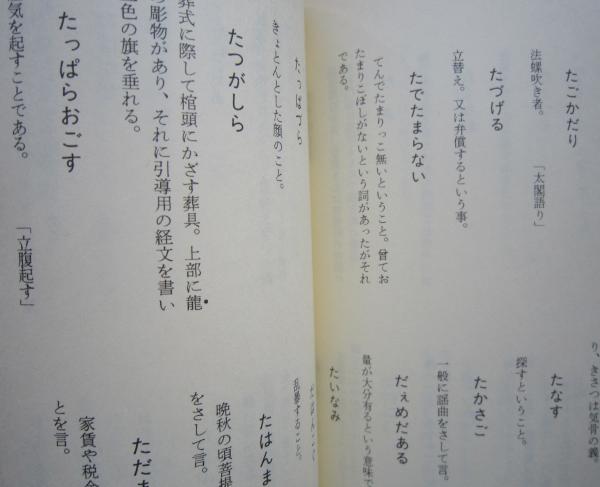 たごかだり
「太閤語り」
法螺吹き者。
たづげる
立替え。又は弁償するという事。
たでたまらない
てんでたまりっこ無いということ。曾てお
たまりこぼしがないという詞があったがそれ
である。
り、きさつは気骨の義。
たなす
探すということ。
たかさご
一般に謡曲をさして言。
だぇめだある
量が大分有るという意味で
たいなみ
たっぱづら
きょとんとした顔のこと。
たつがしら
葬式に際して棺頭にかざす葬具。上部に龍
の彫物があり、それに引導用の経文を書い
色の旗を垂れる。
たっぱらおごす
「立腹起す」
気を起すことである。
乱夢すること。
たはんま
晩秋の頃菩提
をさして言。
ただま
家賃や税金
とを言。